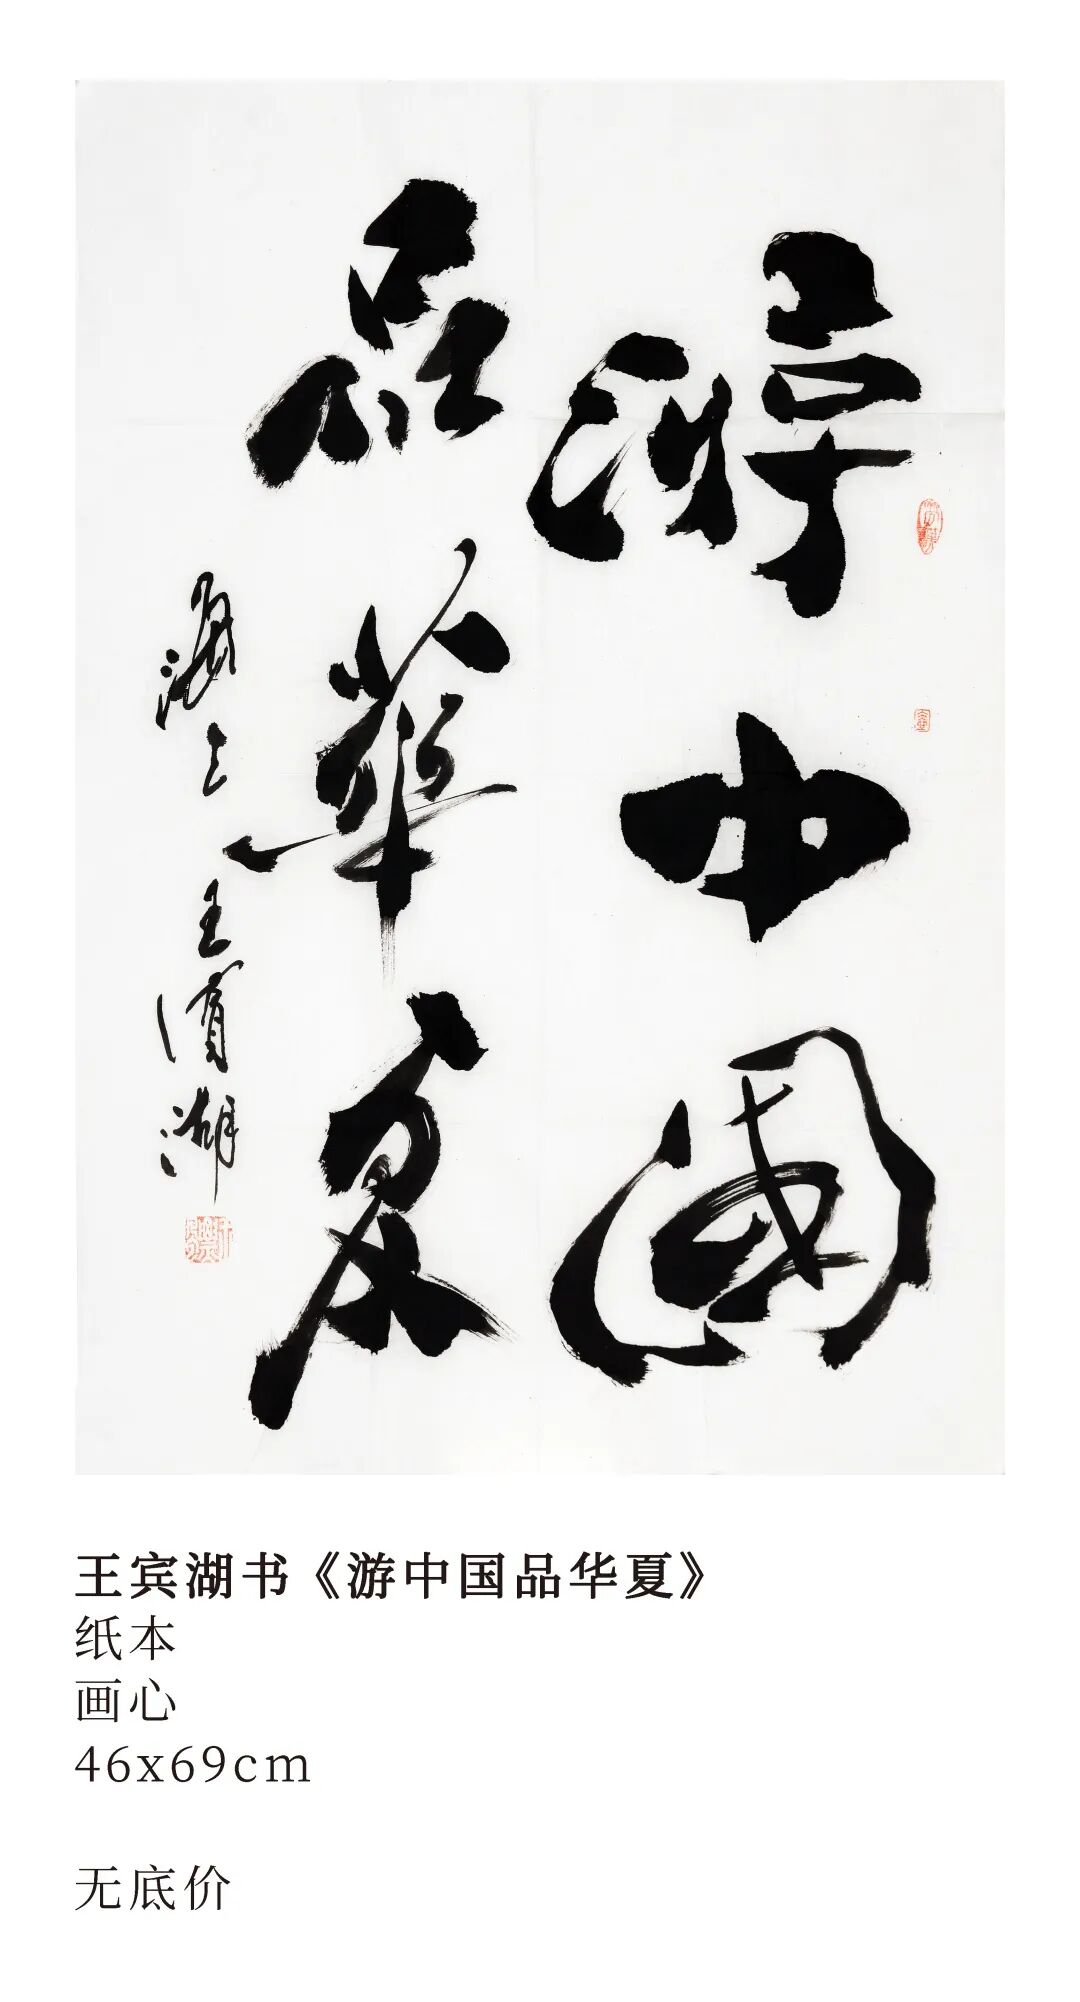 游中國
品華夏
王賓湖
王宾湖书《游中国品华夏》
纸本
画心
46x69cm
无底价